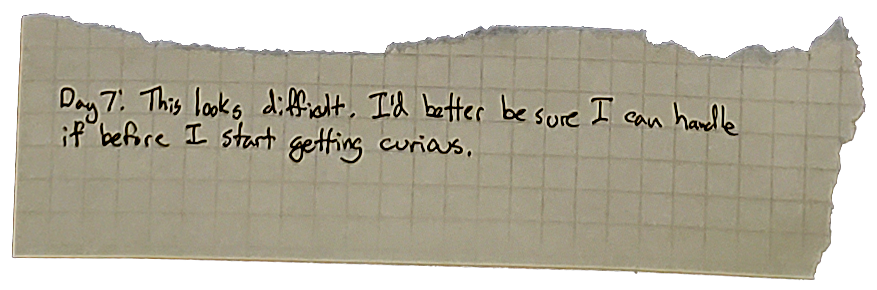 Day 7: This looks difficult. I'd better be sure I can handle
it before I start getting curious.